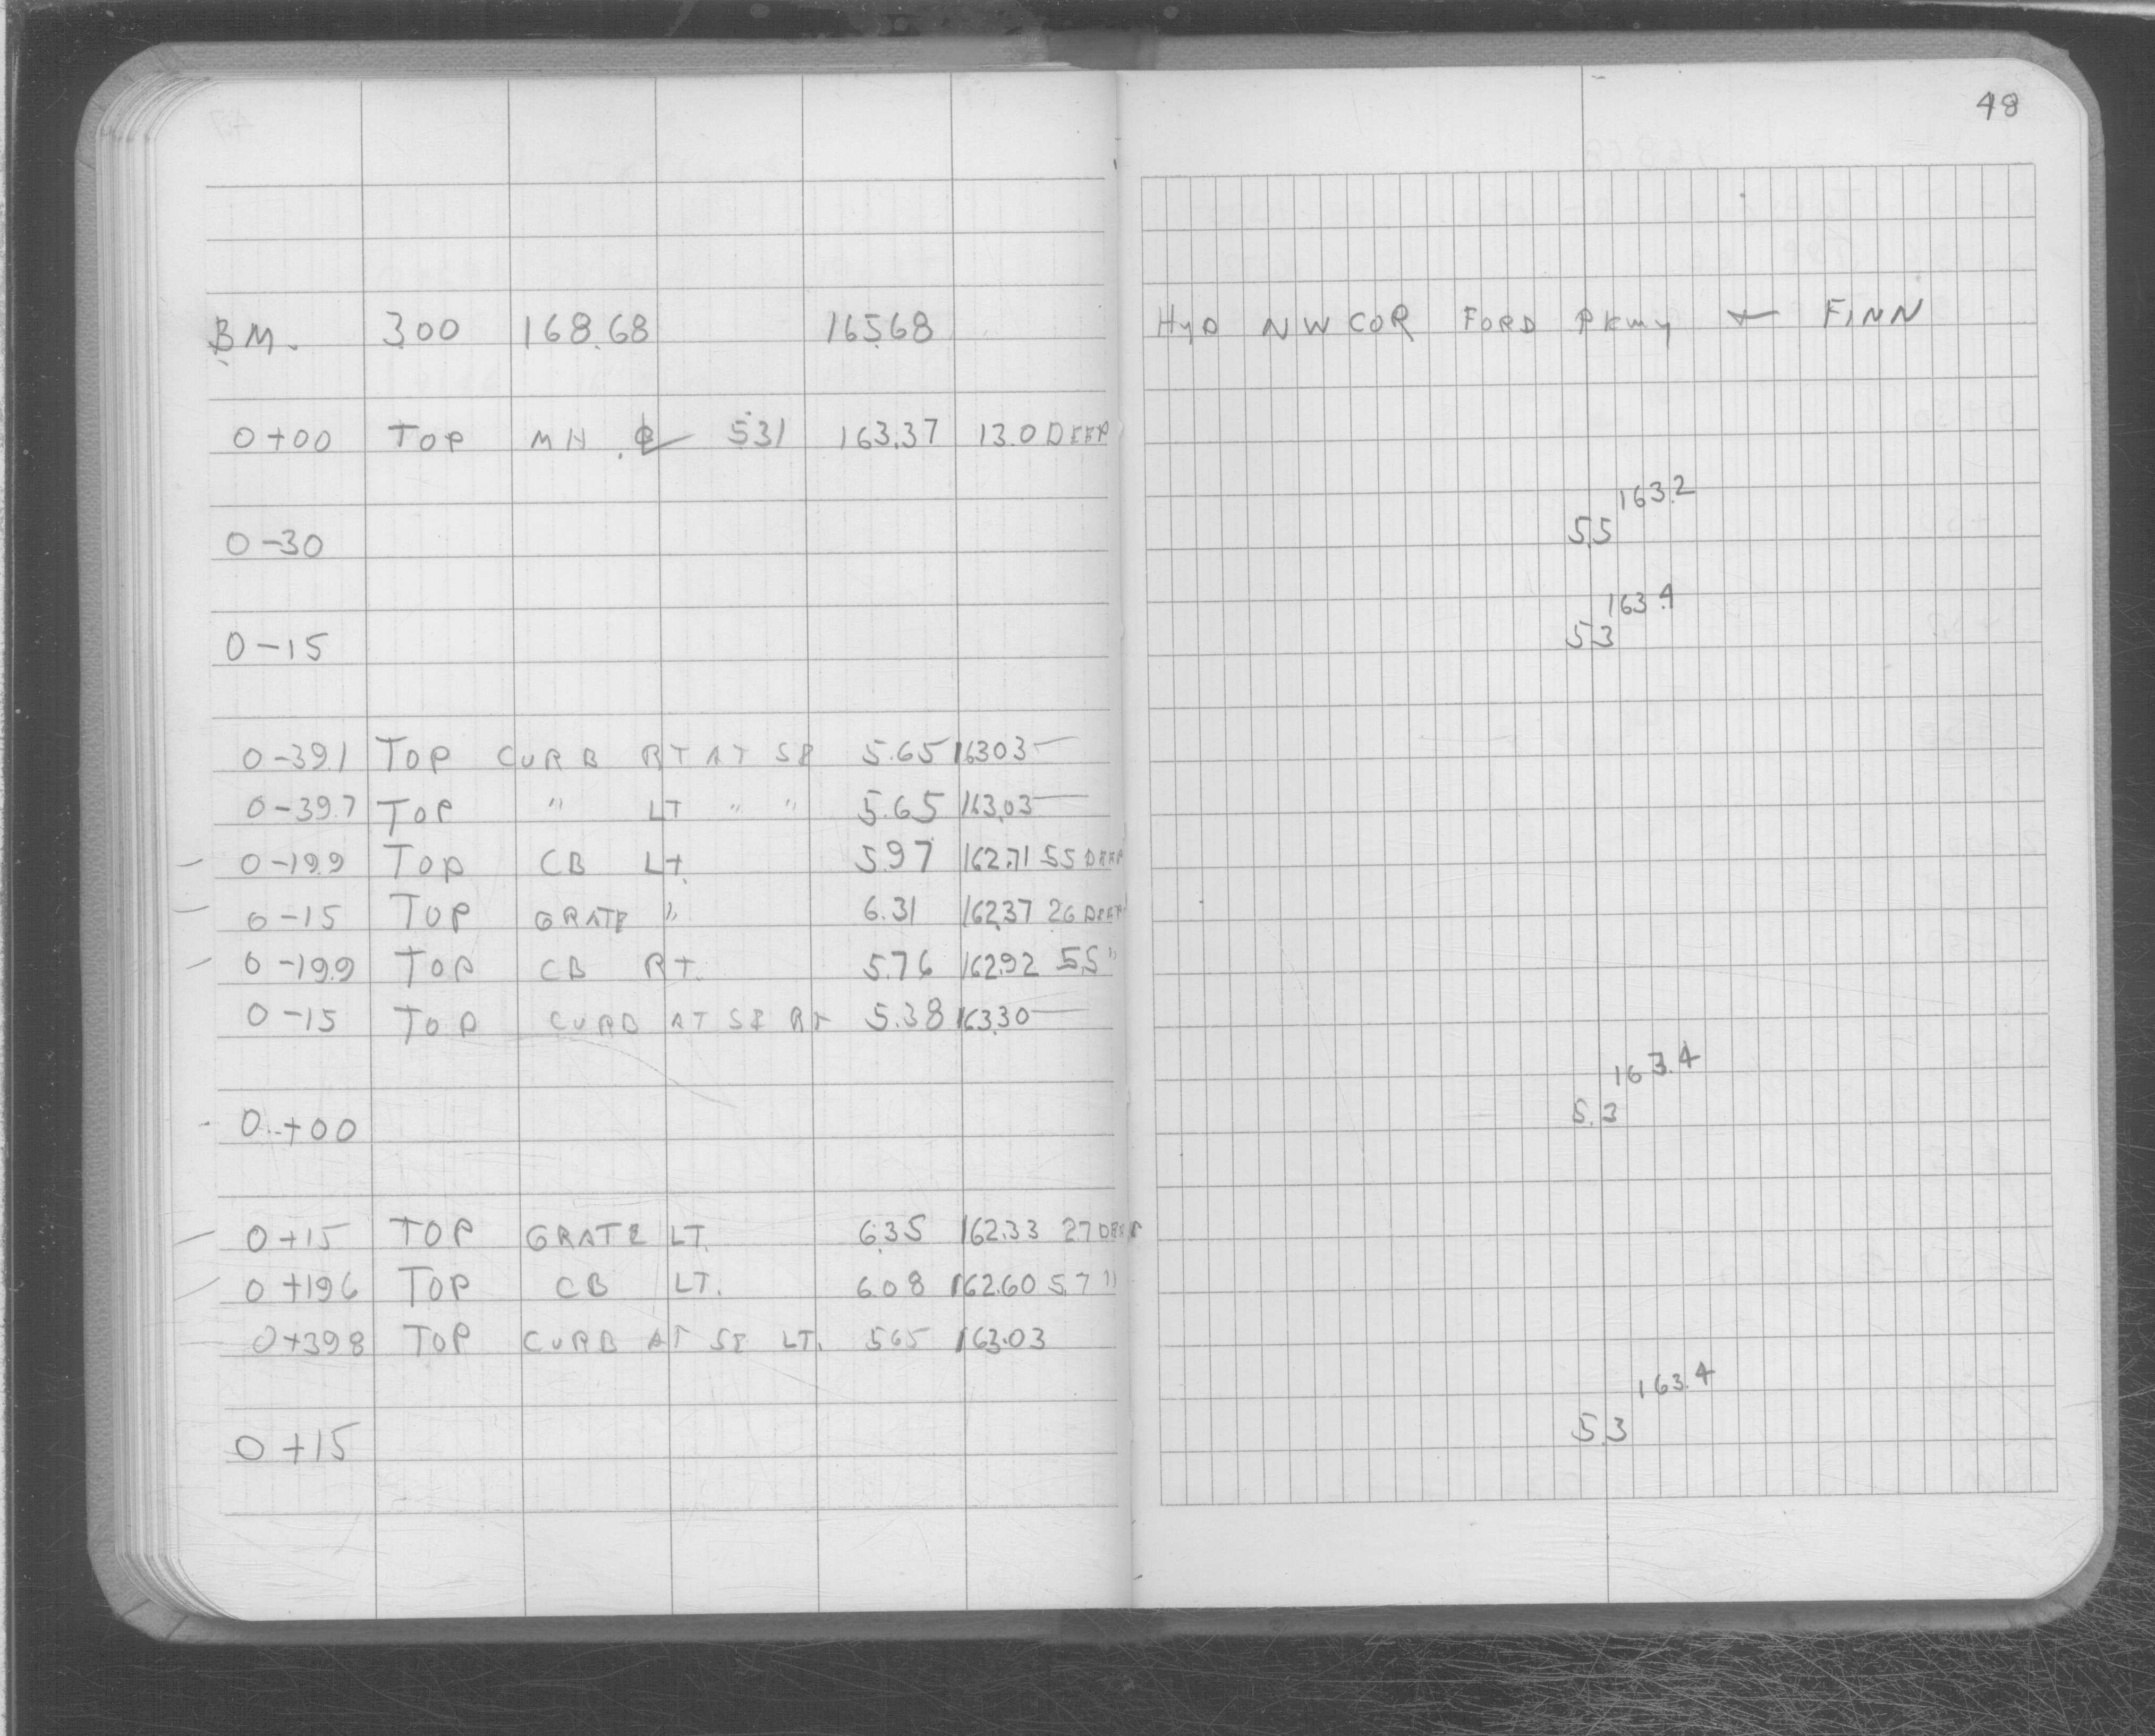 48
BM. 3.00 168.68 165.68 HYD NW COR FORD PKWY & FINN
0+00 TOP MH ℄ 531 163.37 13.0 DEEP
163.2
0-30 5.5
163.4
0-15 5.3
0-39.1 TOP CURB RT AT SE 5.65 163.03
0-39.7 TOP " LT " " 5.65 163.03
0-19.9 TOP CB LT. 5.97 162.71 5.5 DEEP
0-15 TOP GRATE " 6.31 162.37 2.6 DEEP
0-19.9 TOP CB RT. 5.76 162.92 5.5 "
0-15 TOP CURB AT SE RT 5.38 163.30
163.4
0+00 5.3
0+15 TOP GRATE LT. 6.35 162.33 2.7 DEEP
0+19.6 TOP CB LT. 6.08 162.60 5.7 "
0+39.8 TOP CURB AT SE LT. 5.65 163.03
163.4
0+15 5.3